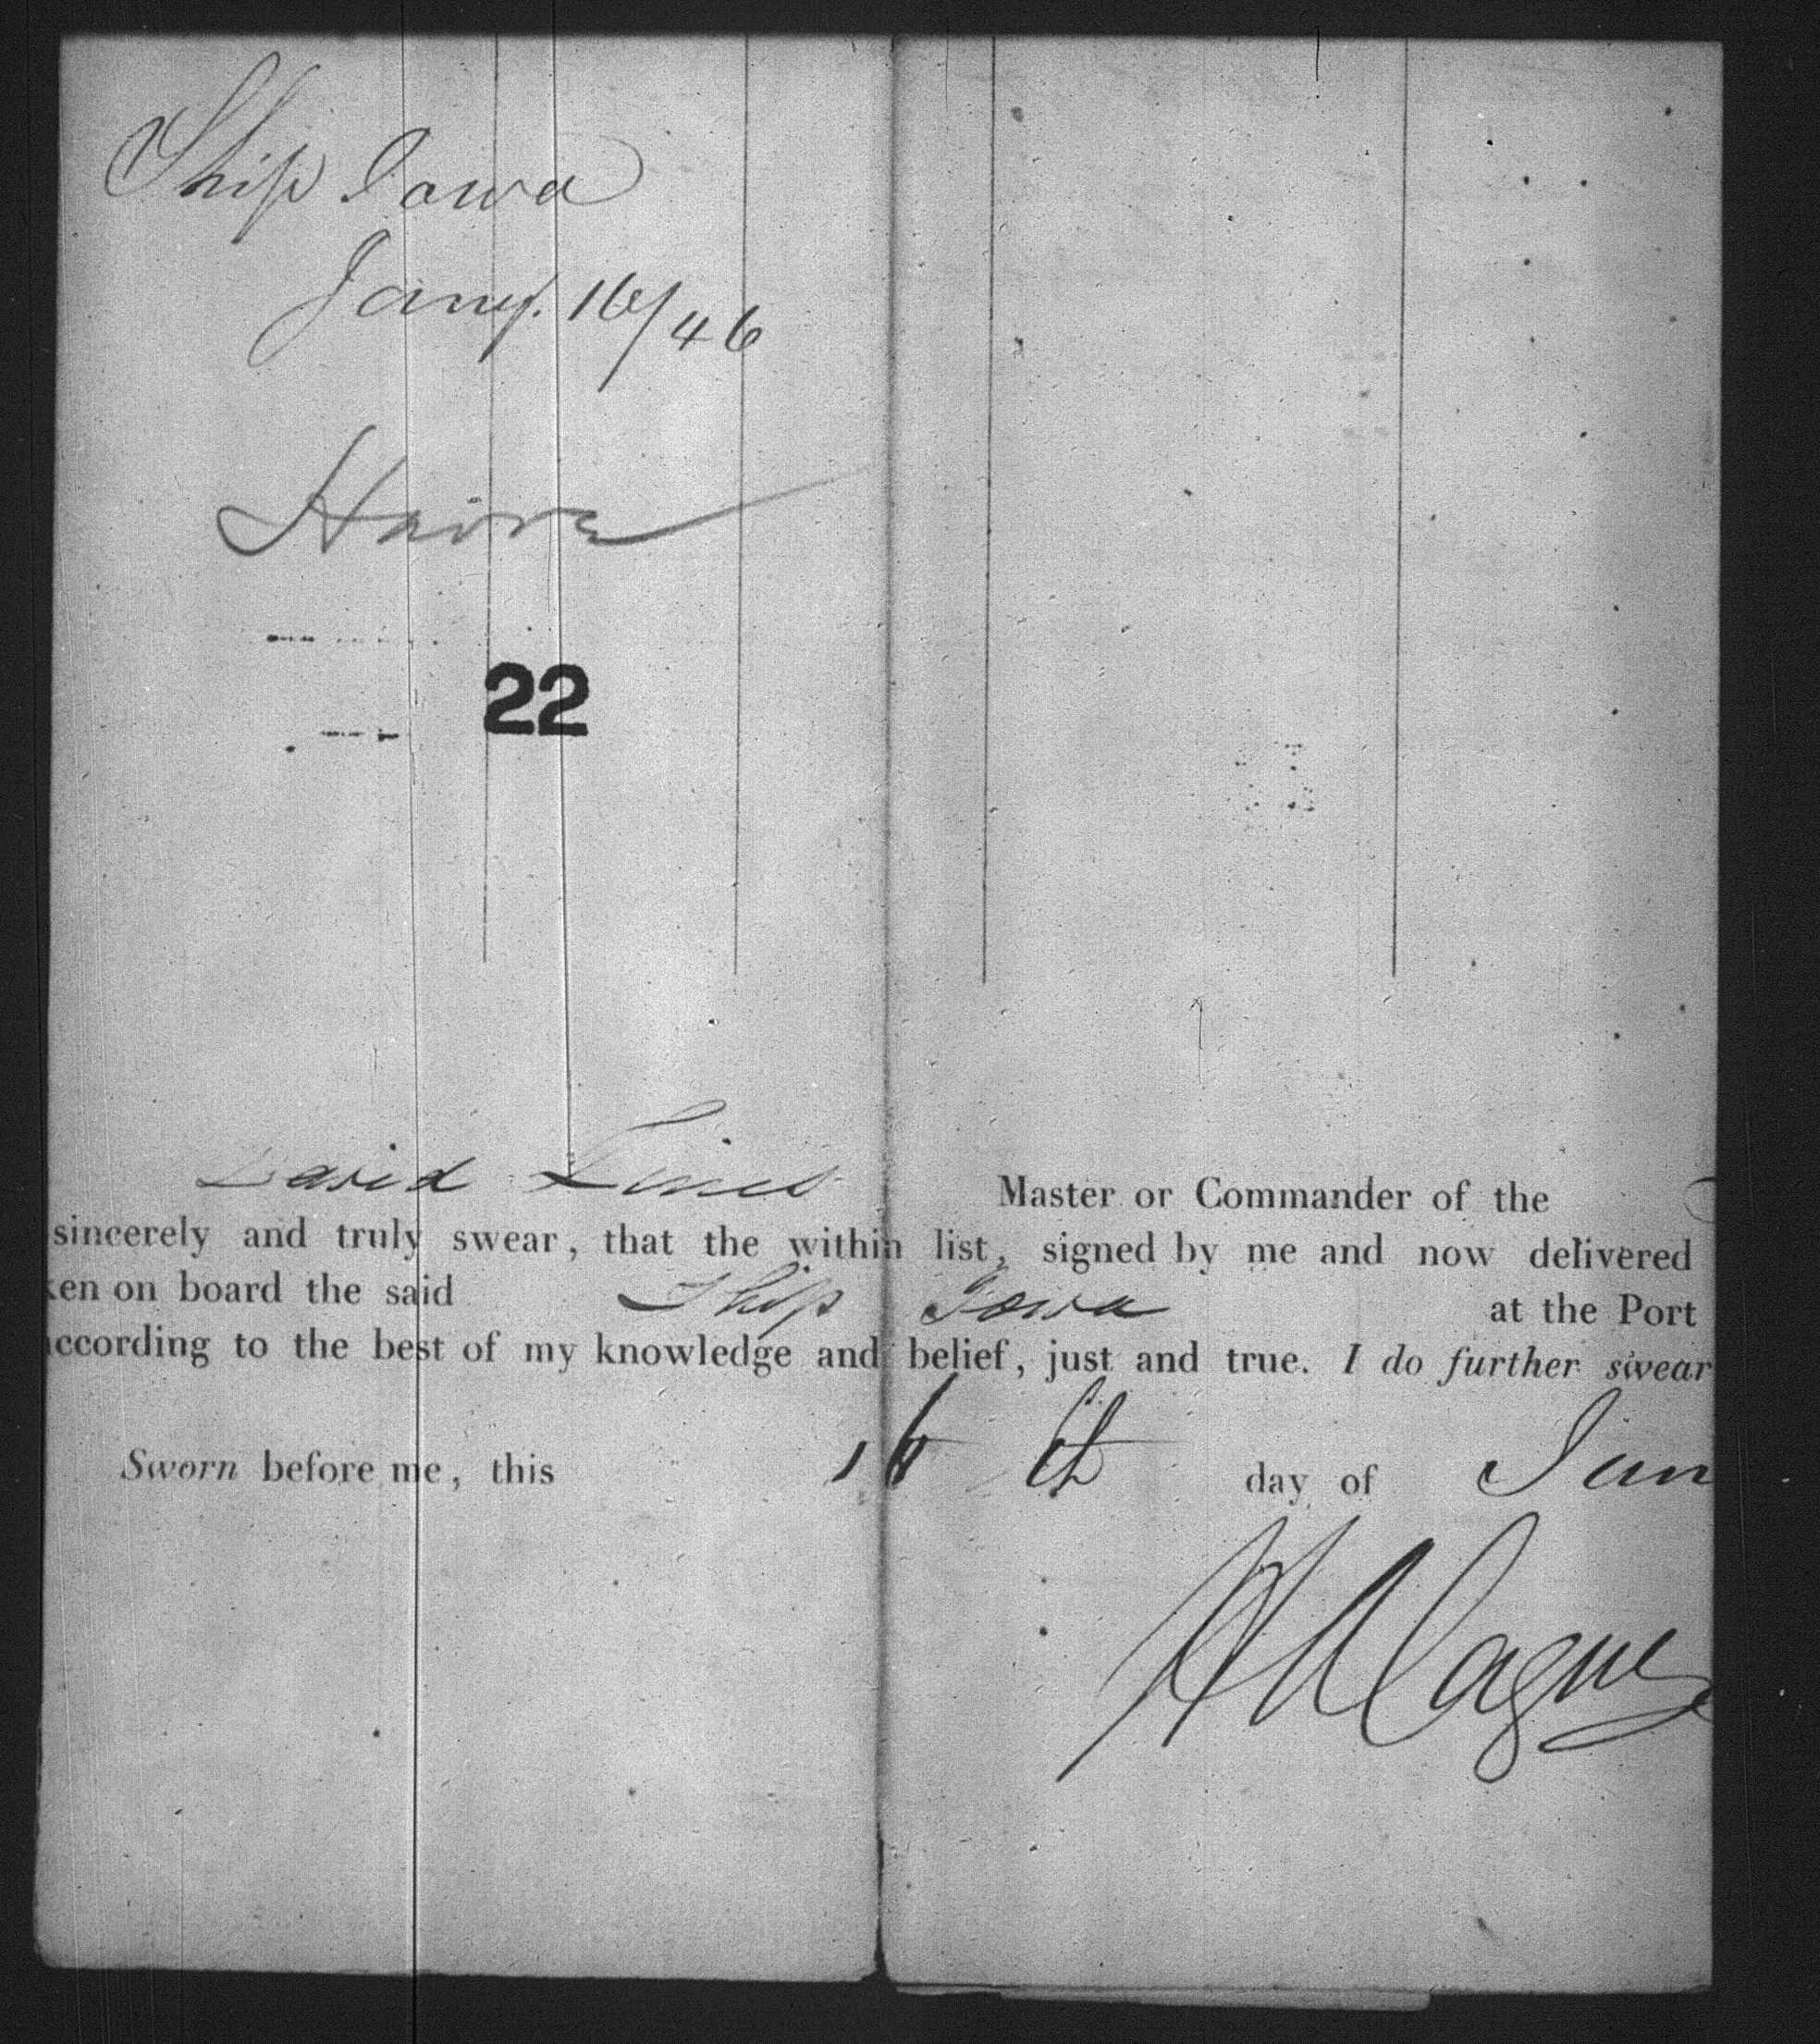 Ship Iowa
Jany. 16/46
Havre
22
David Lines Master or Commander of the
sincerely and truly swear, that the within list, signed by me and now delivered
ken on board the said Ship Iowa at the Port
ccording to the best of my knowledge and belief, just and true. I do further swear
Sworn before me, this 16 th day of Jan